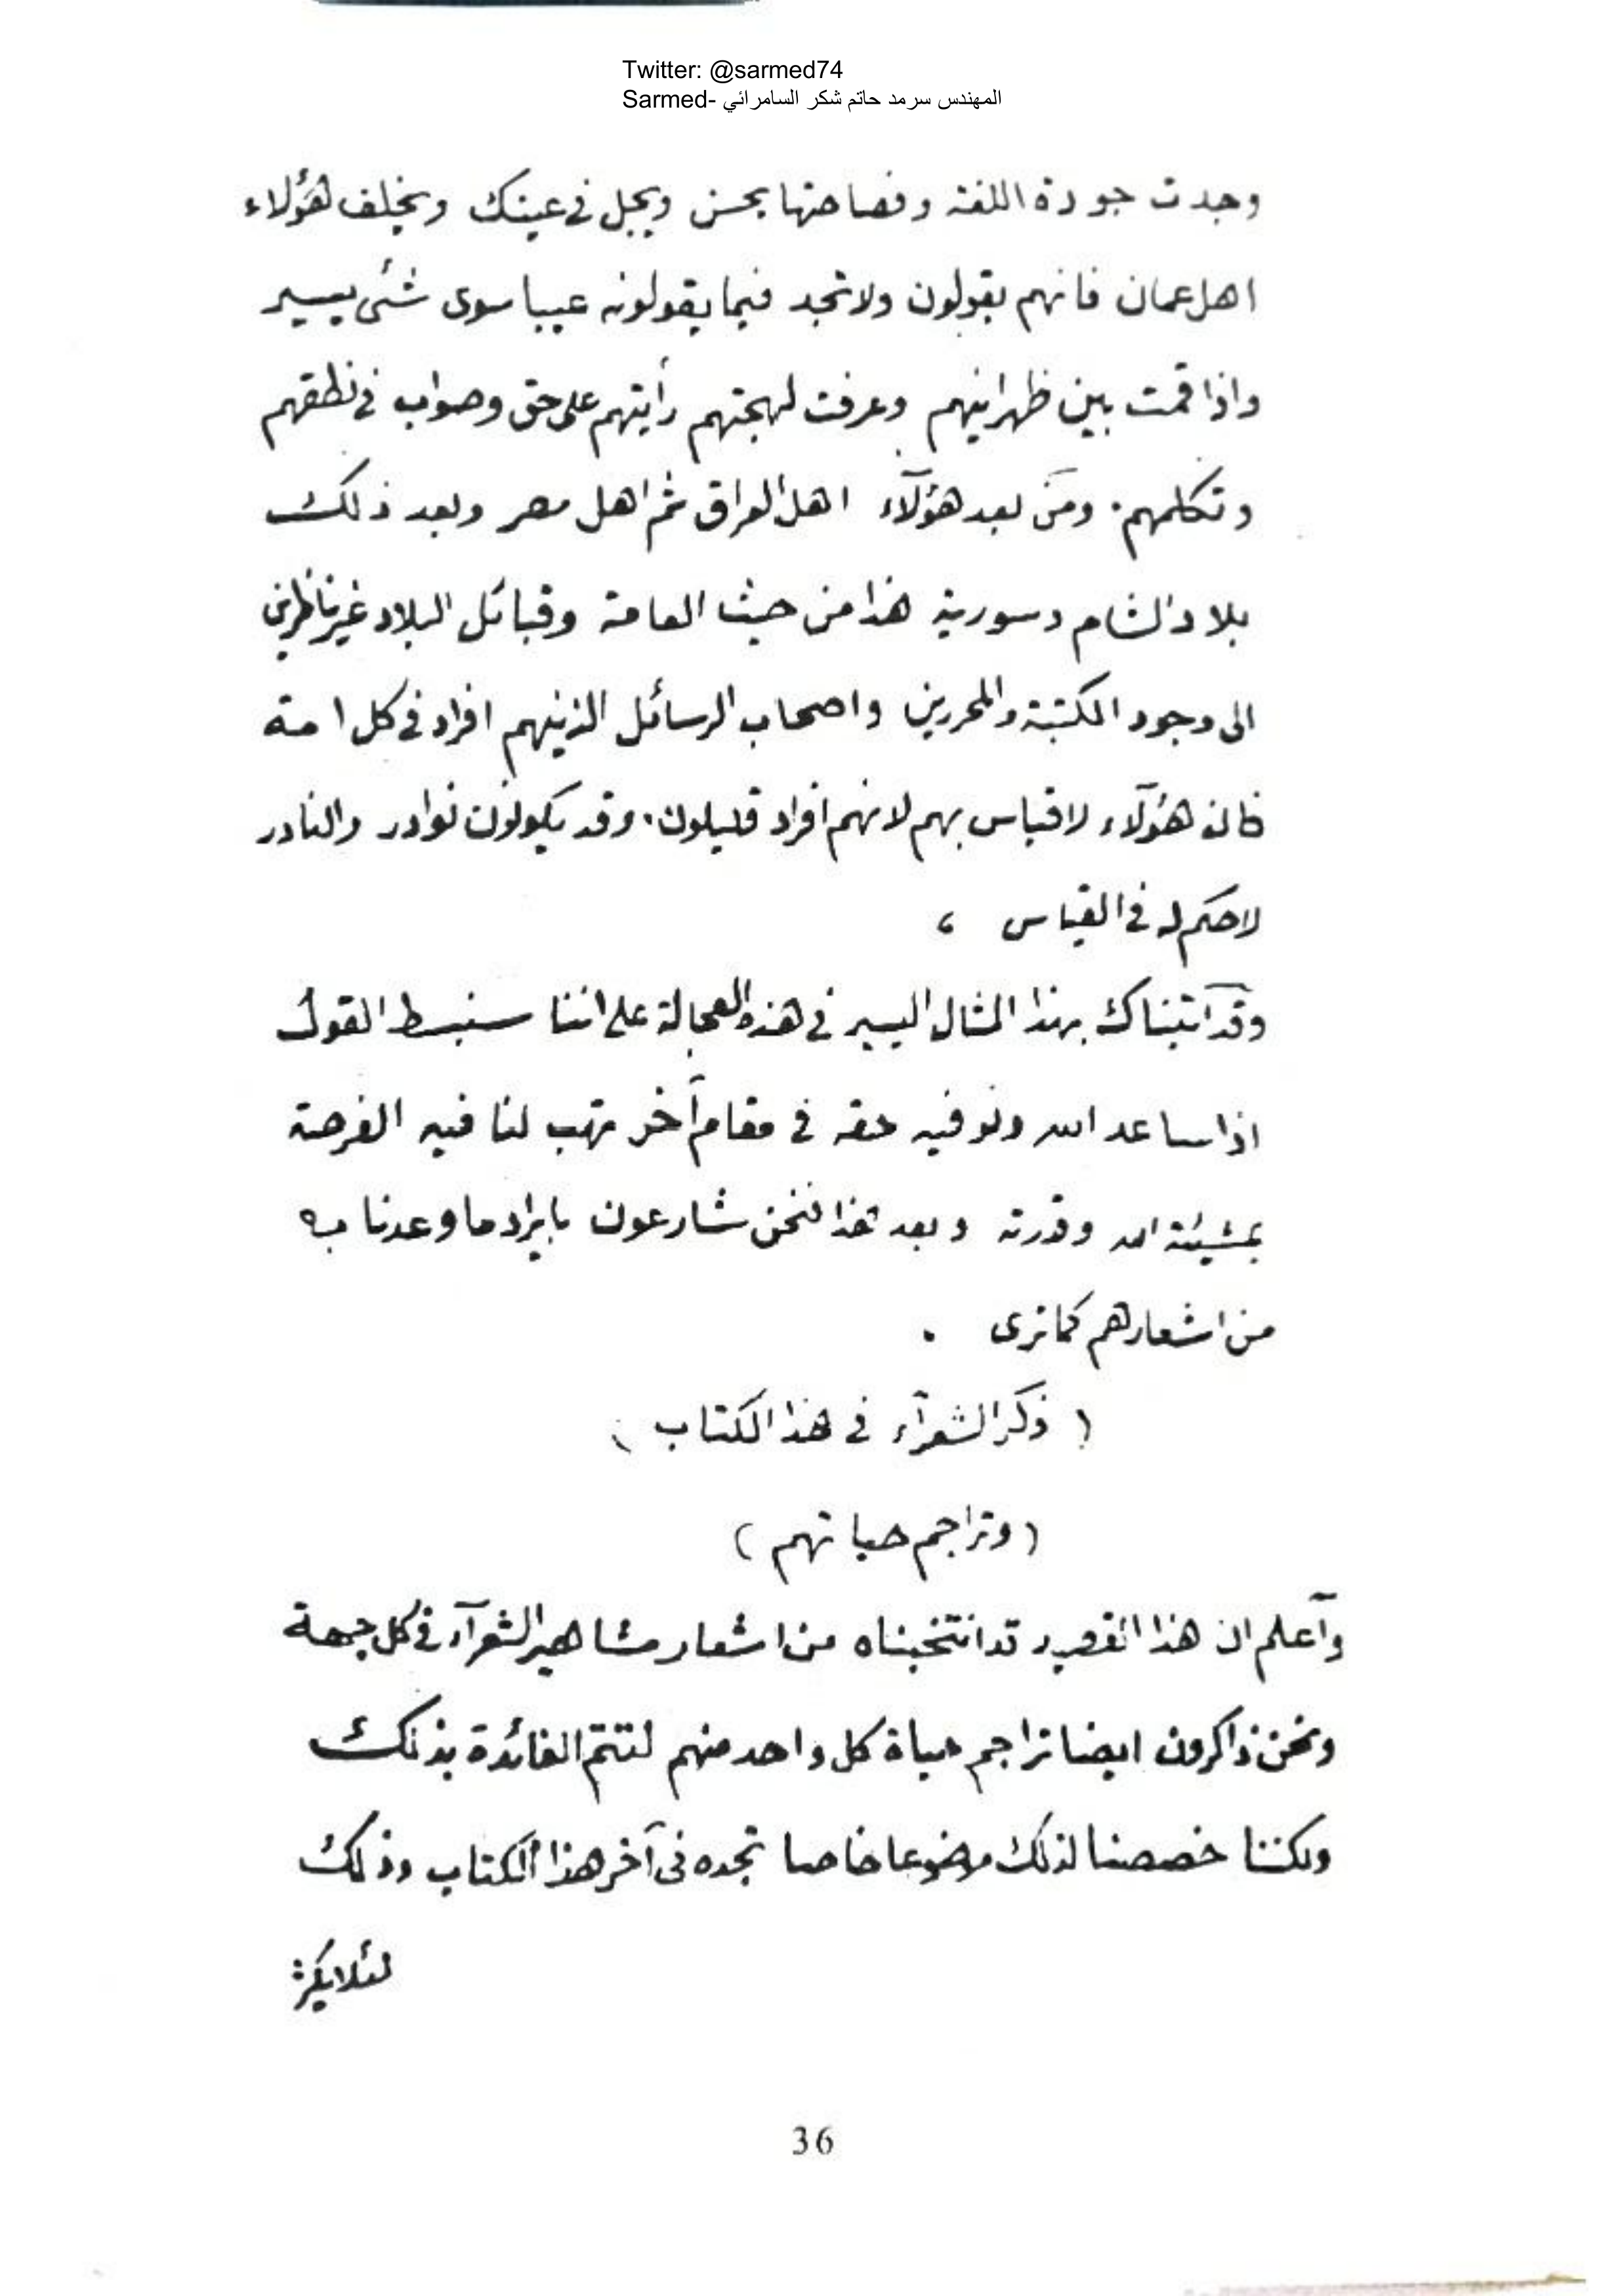 Twitter: @sarmed74
Sarmed- المهندس سرمد حاتم شكر السامرائي
وجدت جودة اللغة وفصاحتها بحسن ويجل في عينك ويخلف هؤلاء
اهل عمان فانهم يقولون ولا تجد فيما يقولونه عيبا سوى شئ يسير
واذا قمت بين ظهرانيهم وعرفت لهجتهم رأيتهم على حق وصواب في نطقهم
وتكلمهم. ومن بعد هؤلآء اهل العراق ثم اهل مصر وبعد ذلك
بلاد الشام وسورية هذا من حيث العامة وقبائل البلاد غير ناظرين
الى وجود المكتبة والمحررين واصحاب الرسائل الذينهم افراد في كل امة
فان هؤلآء لا قياس بهم لانهم افراد قليلون. وقد يكولون نوادر والنادر
لا حكم له في القياس ،
وقد آتيناك بهذا المثال اليسير في هذه العجالة على اننا سنبسط القول
اذا ساعد الله ونوفيه حقه في مقام آخر تهب لنا فيه الفرصة
بمشيئة الله وقدرته وبعد هذا فنحن شارعون بايراد ما وعدنا به
من اشعارهم كما ترى .
( ذكر الشعرآء في هذا الكتاب )
(وتراجم حياتهم)
وآعلم ان هذا القصيد قد انتخبناه من اشعار مشاهير الشعرآء في كل جهة
ونحن ذاكرون ايضا تراجم حياة كل واحد منهم لتتم الفائدة بذلك
ولكننا خصصنا لذلك موضوعا خاصا تجده في آخر هذا الكتاب وذلك
لئلا يكثر
36